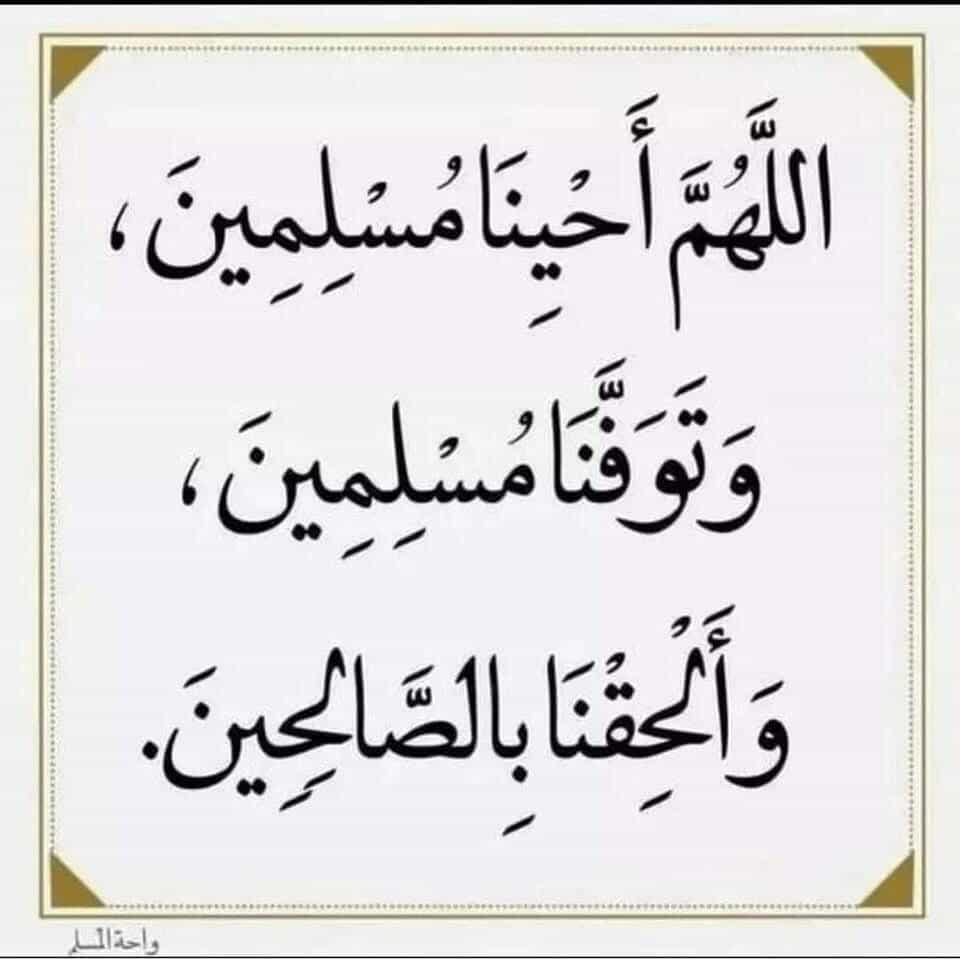 اللَّهُمَّ أَحْيِنَا مُسْلِمِينَ،
وَتَوَفَّنَا مُسْلِمِينَ،
وَأَلْحِقْنَا بِالصَّالِحِينَ.
واحة المسلم